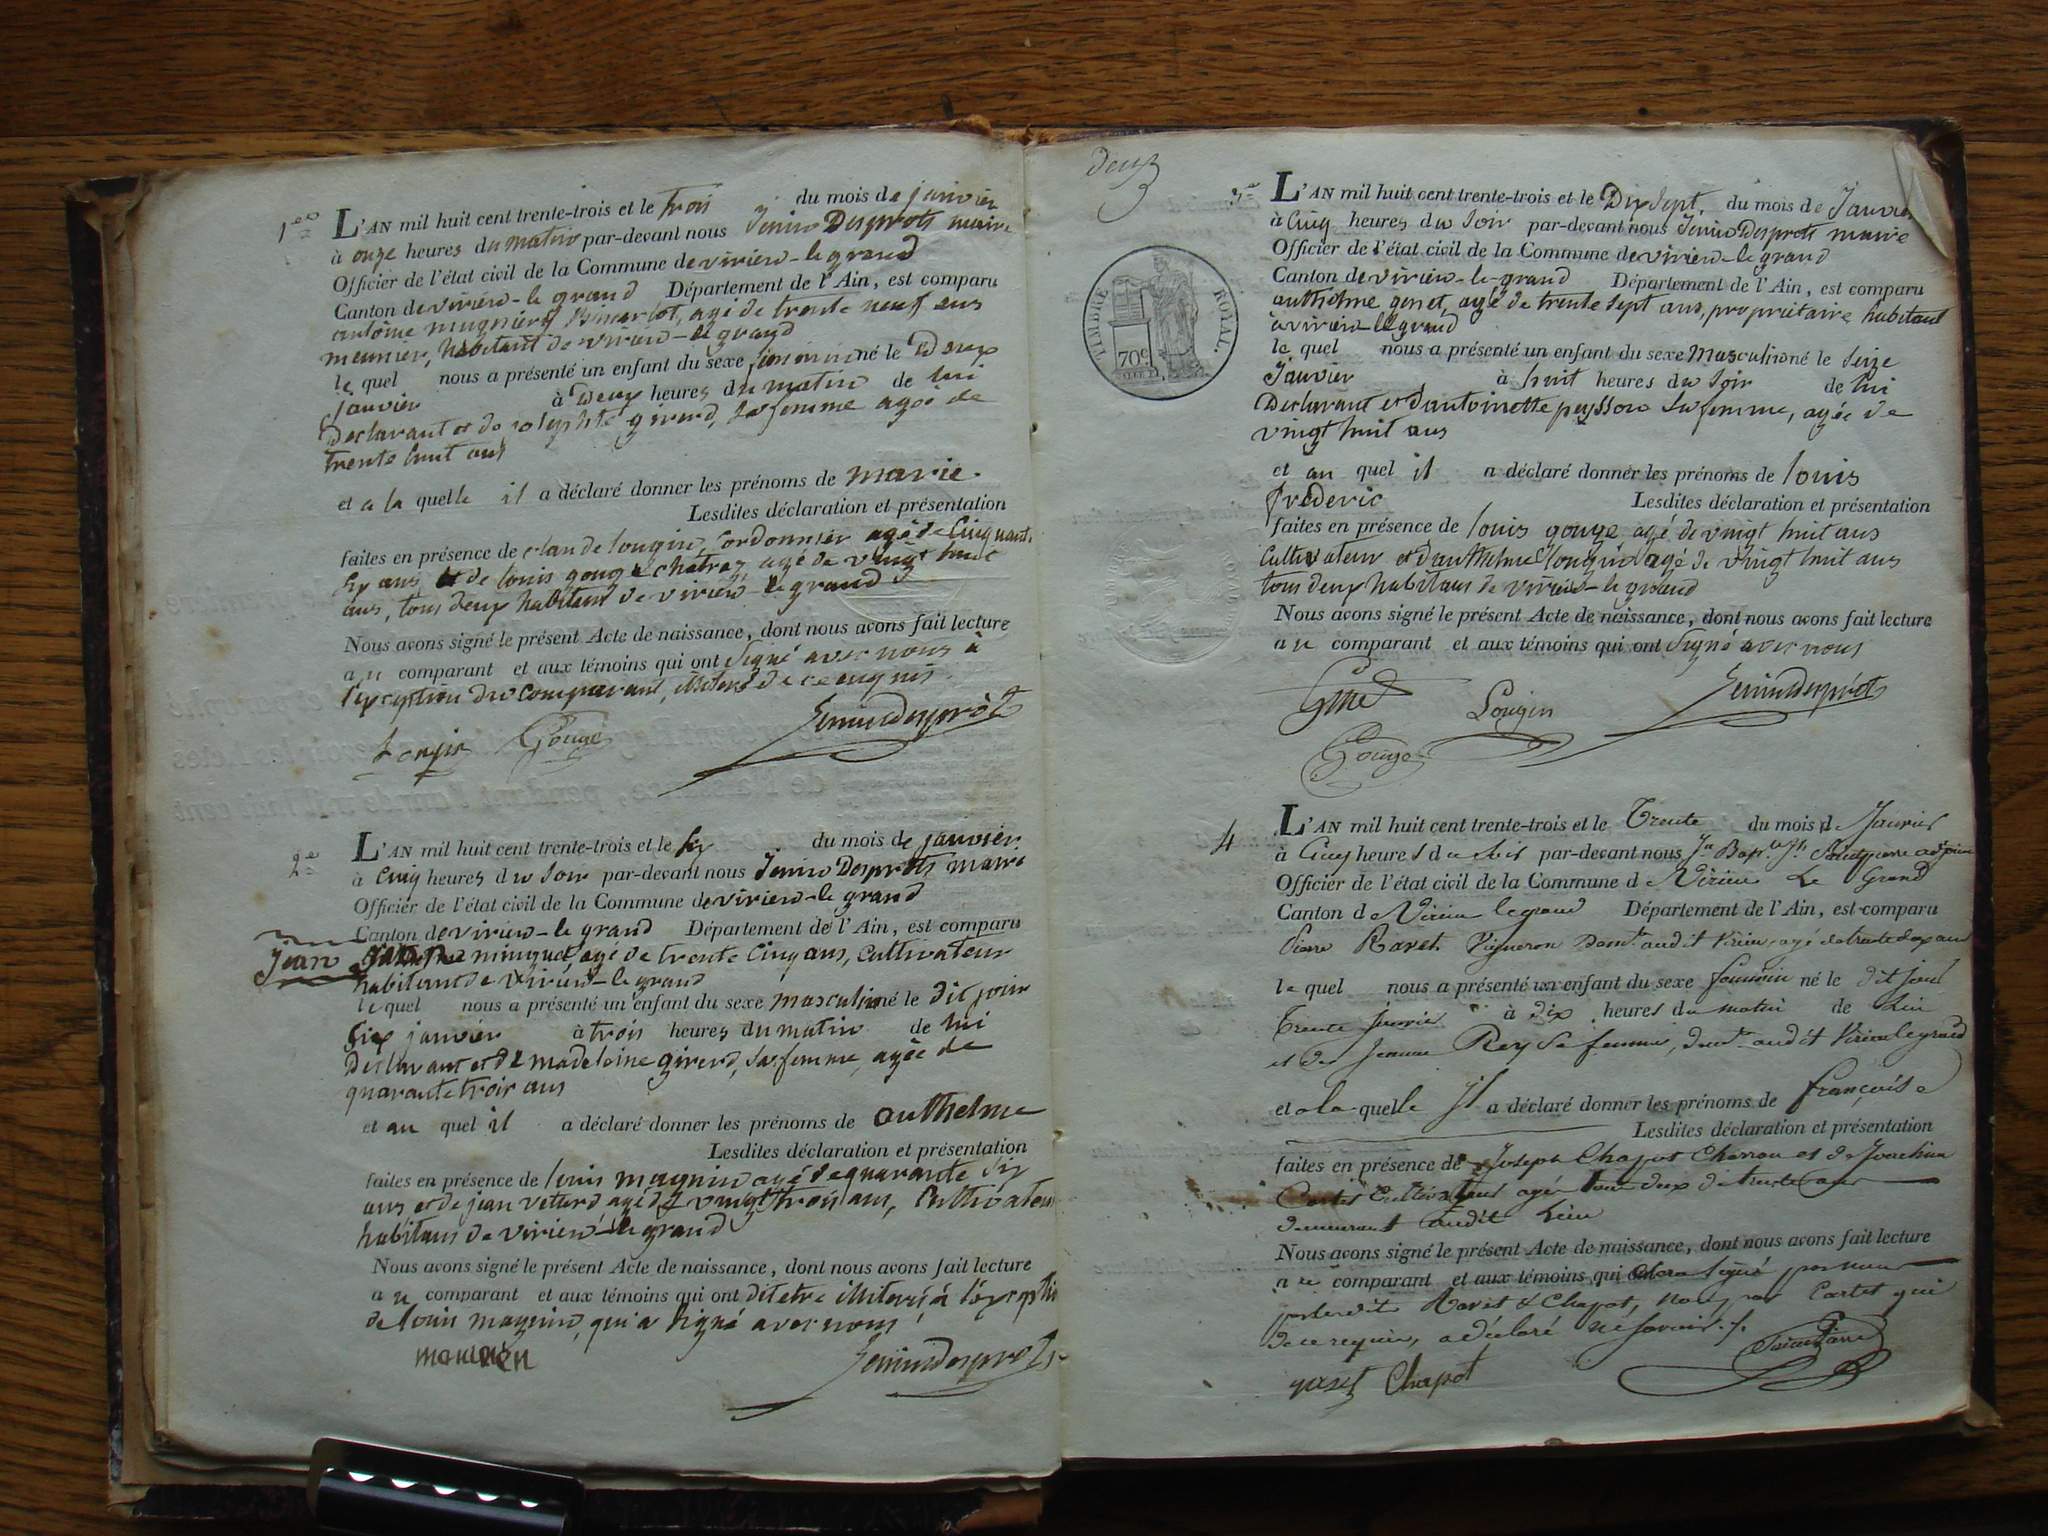 1ere
L'AN mil huit cent trente-trois et le trois du mois de janvier
à onze heures du matin par-devant nous Jenin Desprots maire
Officier de l'état civil de la Commune de virieu-le grand
Canton de virieu-le grand Département de l'Ain, est comparu
antoine mugnier, agé de trente neuf ans
meunier, habitant de virieu-le grand
le quel nous a présenté un enfant du sexe feminin né le Deux
janvier à Deux heures du matin de lui
Declarant et de girerd, sa femme agée de
trente huit ans
et a la quelle il a déclaré donner les prénoms de marie.
Lesdites déclaration et présentation
faites en présence de claude lougin, Cordonnier agé de Cinquante
six ans et de louis gouze chatraz agé de vingt huit
ans, tous deux habitans de virieu-le grand
Nous avons signé le présent Acte de naissance, dont nous avons fait lecture
au comparant et aux témoins qui ont signé avec nous à
l'exception du comparant, de ce enquis.
Lougin Gouze Jenindesprots
2e
L'AN mil huit cent trente-trois et le six du mois de janvier
à Cinq heures du soir par-devant nous Jenin Desprots maire
Officier de l'état civil de la Commune de virieu-le grand
Canton de virieu-le grand Département de l'Ain, est comparu
Jean minquet agé de trente Cinq ans, Cultivateur
habitant de virieu-le grand
le quel nous a présenté un enfant du sexe masculin né le dit jour
six janvier à trois heures du matin de lui
Declarant et de madeleine girerd, sa femme, agée de
quarante trois ans
et au quel il a déclaré donner les prénoms de anthelme
Lesdites déclaration et présentation
faites en présence de louis magnin agé de quarante six
ans et de jean veturd agé de vingt trois ans, Cultivateurs
habitans de virieu-le grand
Nous avons signé le présent Acte de naissance, dont nous avons fait lecture
au comparant et aux témoins qui ont dit etre à
de louis magnin, qui a signé avec nous
Jenindesprots
Deux
TIMBRE ROYAL.
70c
3e
L'AN mil huit cent trente-trois et le Dix sept, du mois de Janvier
à Cinq heures du soir par-devant nous Jenin Desprots maire
Officier de l'état civil de la Commune de virieu-le grand
Canton de virieu-le-grand Département de l'Ain, est comparu
anthelme genet, agé de trente sept ans, propriétaire habitant
à virieu-le grand
le quel nous a présenté un enfant du sexe Masculin né le seize
Janvier à huit heures du soir de lui
Declarant et d'antoinette peysson sa femme, agée de
vingt huit ans
et au quel il a déclaré donner les prénoms de louis
frederic Lesdites déclaration et présentation
faites en présence de louis gouze agé de vingt huit ans
Cultivateur et d'anthelme lougin agé de vingt huit ans
tous deux habitans de virieu-le grand
Nous avons signé le présent Acte de naissance, dont nous avons fait lecture
au comparant et aux témoins qui ont signé avec nous
Genet Lougin Jenindesprots
Gouze
4
L'AN mil huit cent trente-trois et le Trente du mois de Janvier
à Cinq heures du soir par-devant nous Jn Bapte
Officier de l'état civil de la Commune de Virieu Le Grand
Canton de Virieu legrand Département de l'Ain, est comparu
Pierre Ravet Vigneron Domt audit Virieu, agé de trente deux ans
le quel nous a présenté un enfant du sexe feminin né le dit jour
Trente Janvier à dix heures du matin de Lui
et de Jeanne Rey sa femme, demt audit Virieulegrand
et a la quelle Il a déclaré donner les prénoms de françoise
Lesdites déclaration et présentation
faites en présence de Joseph Chapot Charron et de Joachim
Cartet Cultivateurs agés tous deux de trente ans
demeurant audit Lieu
Nous avons signé le présent Acte de naissance, dont nous avons fait lecture
au comparant et aux témoins, qui signé par nous
Ravet & Chapot, non par Cartet qui
de ce requis, a déclaré ne savoir./.
Chapot